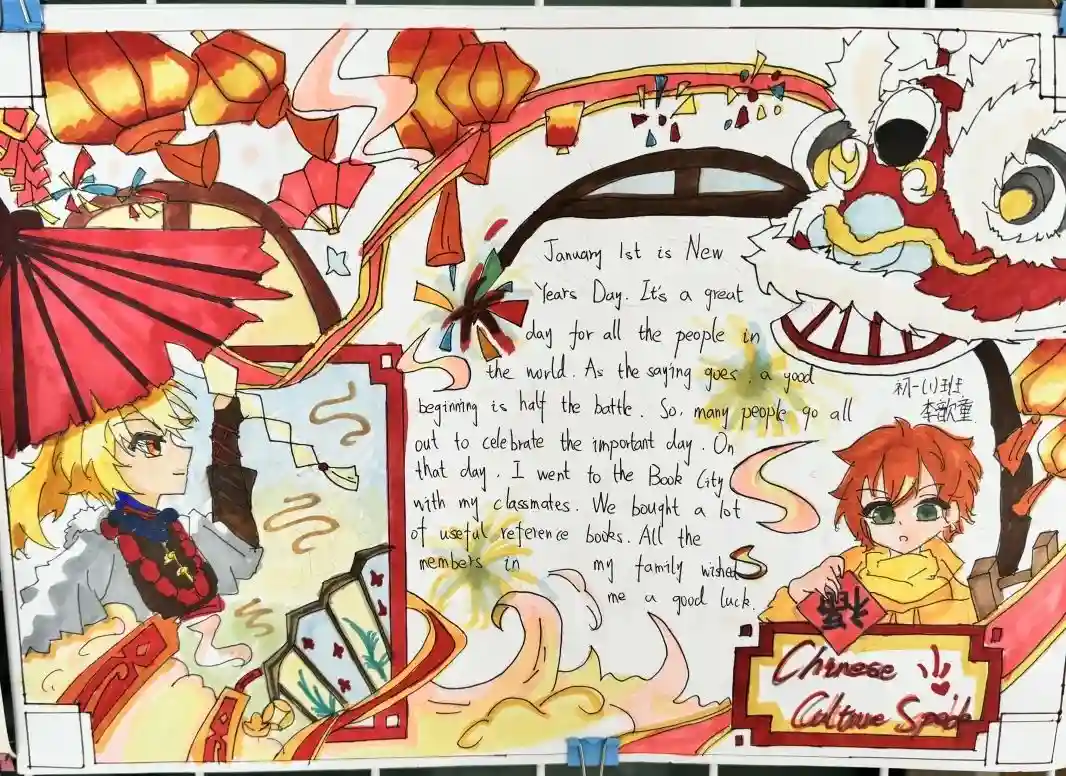 January 1st is New
Years Day. It's a great
day for all the people in
the world. As the saying goes, a good
beginning is half the battle. So, many people go all
out to celebrate the important day. On
that day, I went to the Book City
with my classmates. We bought a lot
of useful reference books. All the
members in my family wished
me a good luck.
初一(1)班
李歆童
福
Chinese
Culture